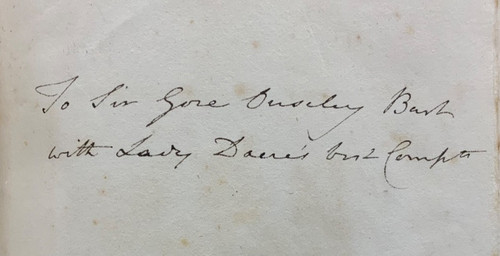 To Sir Gore Ouseley Bart
with Lady Dacre's best Compts